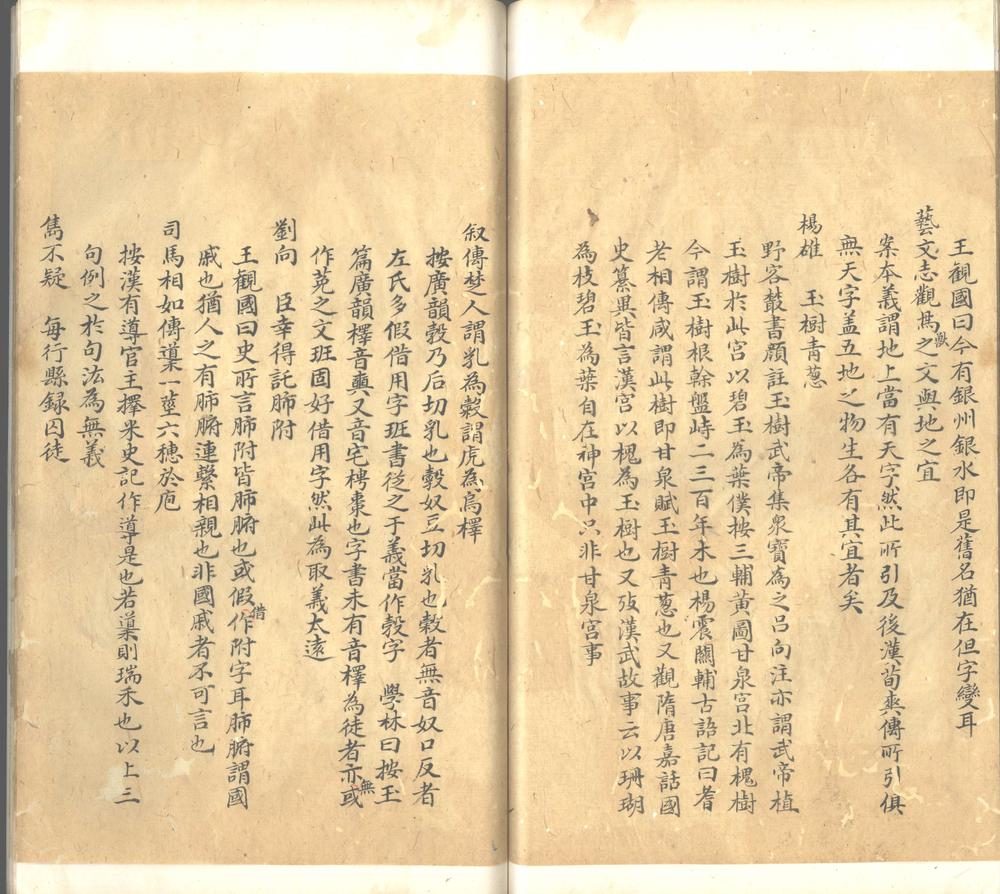 王觀國曰今有銀州銀水即是舊名猶在但字變耳
藝文志觀鳥獸之文與地之宜
案本義謂地上當有天字然此所引及後漢荀爽傳所引俱
無天字盖五地之物生各有其宜者矣
楊雄　玉樹青葱
野客叢書顔註玉樹武帝集衆寶為之吕向注亦謂武帝植
玉樹於此宮以碧玉為葉僕按三輔黄圖甘泉宮北有槐樹
今謂玉樹根榦盤峙二三百年木也楊震關輔古語記曰耆
老相傳咸謂此樹即甘泉賦玉樹青葱也又觀隋唐嘉話國
史纂異皆言漢宮以槐為玉樹也又攷漢武故事云以珊瑚
為枝碧玉為葉自在神宮中只非甘泉宮事
叙傳楚人謂乳為穀謂虎為烏檡
按廣韻㝅乃后切乳也㝅奴豆切乳也穀者無音奴口反者
左氏多假借用字班書從之于義當作㝅字　學林曰按玉
篇廣韻檡音奭又音宅梬棗也字書未有音檡為徒者亦無或
作菟之文班固好借用字然此為取義太遠
劉向　臣幸得託肺附
王觀國曰史所言肺附皆肺腑也或假借作附字耳肺腑謂國
戚也猶人之有肺腑連繫相親也非國戚者不可言也
司馬相如傳䆃一莖六穗於庖
按漢有導官主擇米史記作導是也若䆃則瑞禾也以上三
句例之於句法為無義
雋不疑　每行縣録囚徒